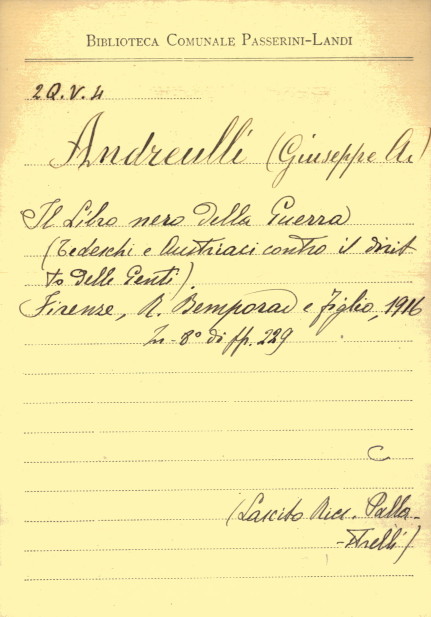 BIBLIOTECA COMUNALE PASSERINI-LANDI
2Q.V.4
Andreulli (Giuseppe A.)
Il Libro nero della Guerra
(Tedeschi e Austriaci contro il dirit-
to delle Genti).
Firenze, R. Bemporad e figlio, 1916
In-8° di pp. 229
C
(Lascito Ricc. Palla-
-strelli)